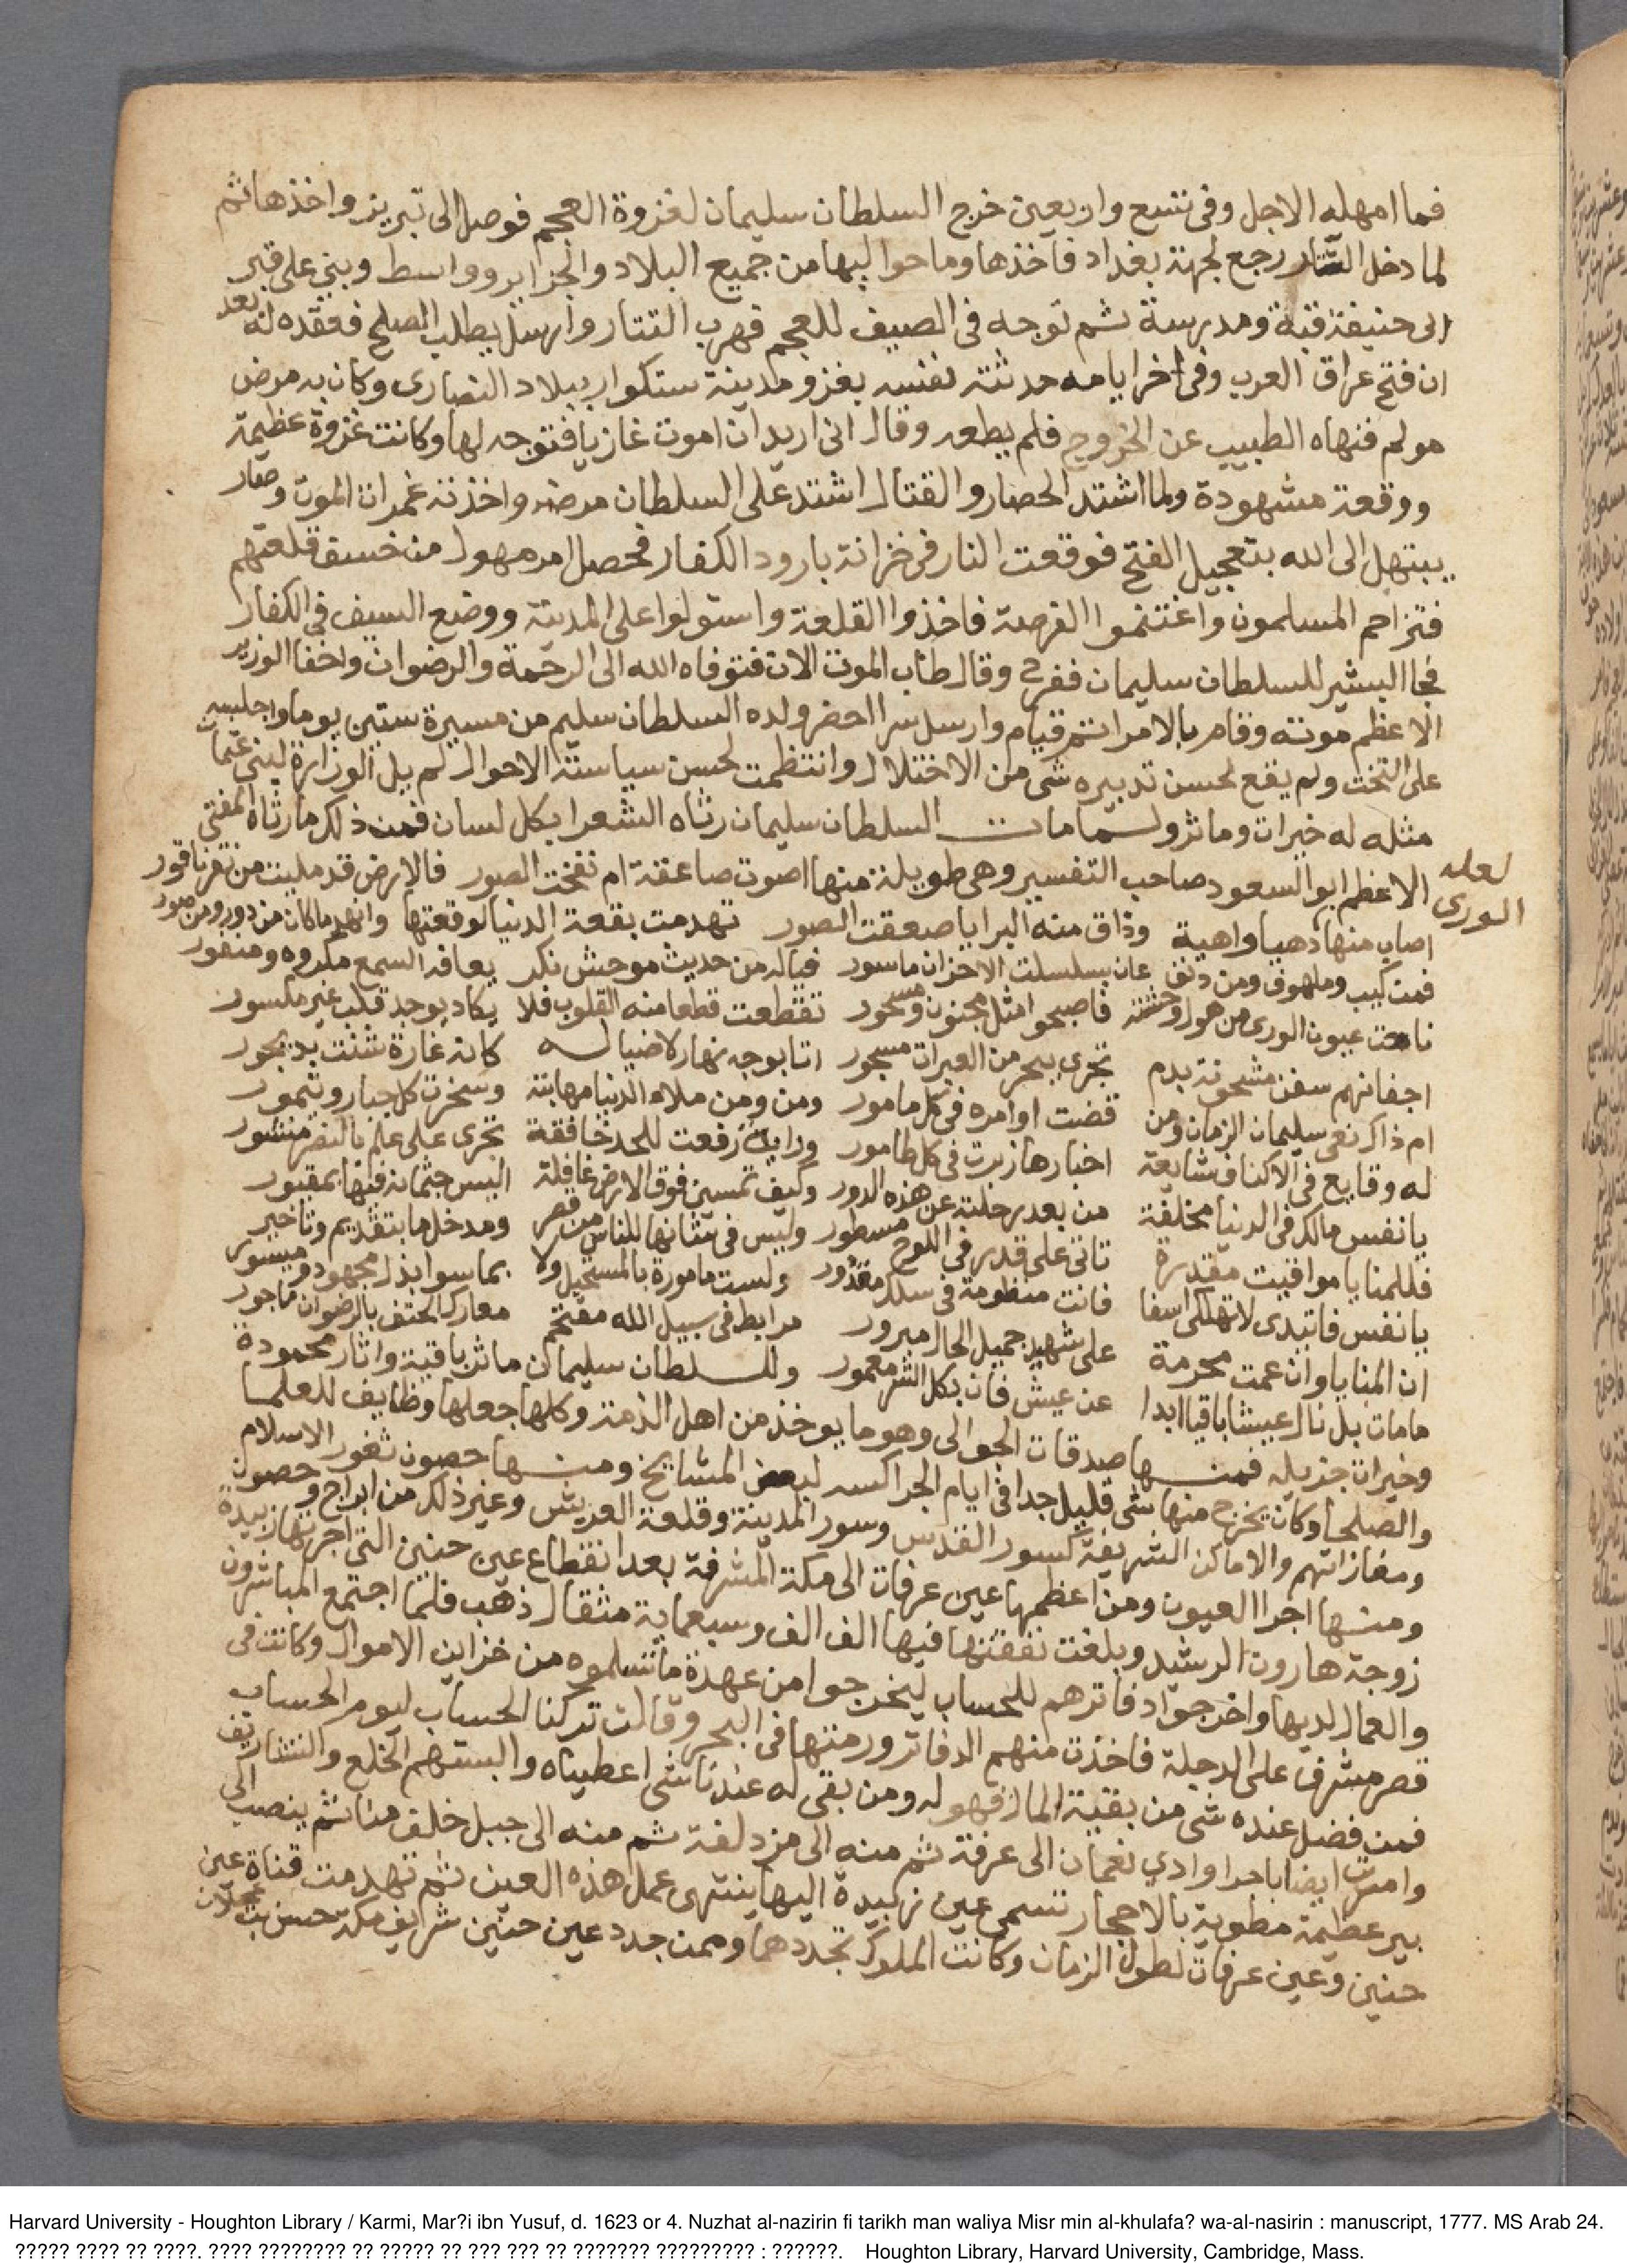 فما امهله الاجل وفى تسع واربعين خرج السلطان سليمان لغزوة العجم فوصل الى تبريز واخذها ثم
لما دخل رجع لجهة بغداد فاخذها وما حواليها من جميع البلاد والجزاير وواسط وبنى على قبر
ابى حنيفة قبة ومدرسة ثم توجه فى الصيف للعجم فهرب التتار وارسل يطلب الصلح فعقده له بعد
ان فتح عراق العرب وفى اخر ايامه حدثته نفسه بغزو مدينة ستكوار ببلاد النصارى وكان به مرض
مولم فنهاه الطبيب عن الخروج فلم يطعه وقال انى اريد ان اموت غازيا فتوجه لها وكانت غزوة عظيمة
ووقعة مشهودة ولما اشتد الحصار والقتال اشتد على السلطان مرضه واخذته غمرات الموت وصار
يبتهل الى الله بتعجيل الفتح فوقعت النار فى خزانة بارود الكفار فحصل امر مهول من خسف قلعتهم
فتزاحم المسلمون واغتنموا الفرصة فاخذوا القلعة واستولوا على المدينة ووضع السيف فى الكفار
فجا البشير للسلطان سليمان ففرح وقال طاب الموت الان فتوفاه الله الى الرحمة والرضوان واخفا الوزير
الاعظم موته وقام بالامر اتم قيام وارسل سرا احضر ولده السلطان سليم من مسيرة ستين يوما واجلسه
على التخت ولم يقع لحسن تدبيره شى من الاختلال وانتظمت لحسن سياسته الاحوال لم يل الوزارة لبنى عثمان
مثله له خيرات وماثر ولما مات السلطان سليمان رثاه الشعرا بكل لسان فمن ذلك ما رثاه المفتى
لعله
الورى
الاعظم ابو السعود صاحب التفسير وهى طويلة منها اصوت صاعقة ام نفخت الصور فالارض قد مليت من نقر ناقور
اصاب منها دهيا واهية وذاق منه البرايا صعقت الصور تهدمت بقعة الدنيا لوقعتها وانهد ما كان من دور ومن سور
فمن كيب وملهوف ومن دنف عان بسلسلت الاحزان ماسور فياله من حديث موحش نكر يعافه السمع مكروه ومنفور
عيون الورى من هول وحشته فاصبحوا مثل مجنون ومسحور تقطعت قطعا منه القلوب فلا يكاد يوجد قلب غير مكسور
اجفانهم سفن مشحونة بدم تجرى ببحر من العبرات مسجور اتا بوجه نهار لا ضيا له كانه غارة شنت بديجور
ام ذاك نعى سليمان الزمان ومن قضت اوامره فى كل مامور ومن ومن ملا الدنيا مهابته وسخرت كل جبار وتيمور
له وقايع فى الاكناف شايعة اخبارها زبرت فى كل طامور وراية رفعت للمجد خافقة تجرى على علم بالنصر منشور
يا نفس مالك فى الدنيا مخلفة من بعد رحلته عن هذه الدور وكيف تمسين فوق الارض غافلة اليس جثمانه فيها بمقبور
فللمنايا مواقيت مقدرة تاتى على قدر فى اللوح مسطور وليس فى شانها للناس من قصر ومدخل ما بتقديم وتاخير
يا نفس فاتيدى لا تهلكى اسفا فانت منظومة فى سلك مقدور ولست مامورة بالمستحيل ولا بما سوا بذل مجهود وميسور
ان المنايا وان عمت محرمة على شهيد جميل الحال مبرور مرابط فى سبيل الله مقتحم معارك الحتف بالرضوان ماجور
مامات بل نال عيشا باقيا ابدا عن عيش فان بكل الشر معمور وللسلطان سليمان ماثر باقية واثار محمودة
وخيرات جزيله فمنها صدقات الجوالى وهو ما يوخذ من اهل الذمة وكلها جعلها وظايف للعلما
والصلحا وكان يخرج منها شى قليل جدا فى ايام الجراكسه لبعض المشايخ ومنها حصون ثغور الاسلام
ومغازاتهم والاماكن الشريفة كسور القدس وسور المدينة وقلعة العريش وغير ذلك من ابراج وحصون
ومنها اجرا العيون ومن اعظمها عين عرفات الى مكة المشرفة بعد انقطاع عين حنين التى اجرتها زبيدة
زوجة هارون الرشيد وبلغت نفقتها فيها الف الف وسبعماية مثقال ذهب فلما اجتمع المباشرون
والعمال لديها واخرجوا دفاترهم للحساب ليخرجوا من عهدة ما تسلموه من خزاين الاموال وكانت فى
قصر مشرف على الدجلة فاخذت منهم الدفاتر ورمتها فى البحر وقالت تركنا الحساب ليوم الحساب
فمن فضل عنده شى من بقية المال فهو له ومن بقى له عندنا شى اعطيناه والبستهم الخلع والتشاريف
وامرت ايضا باجرا وادي نعمان الى عرفة ثم منه الى مزدلفة ثم منه الى جبل خلف منا ثم ينصب الى
بير عظيمة مطوية بالاحجار تسمى عين زبيدة اليها ينتهى عمل هذه العين ثم تهدمت قناة عين
حنين وعين عرفات لطول الزمان وكانت الملوك تجددهما وممن جدد عين حنين شرايف مكة حسن بن عجلان